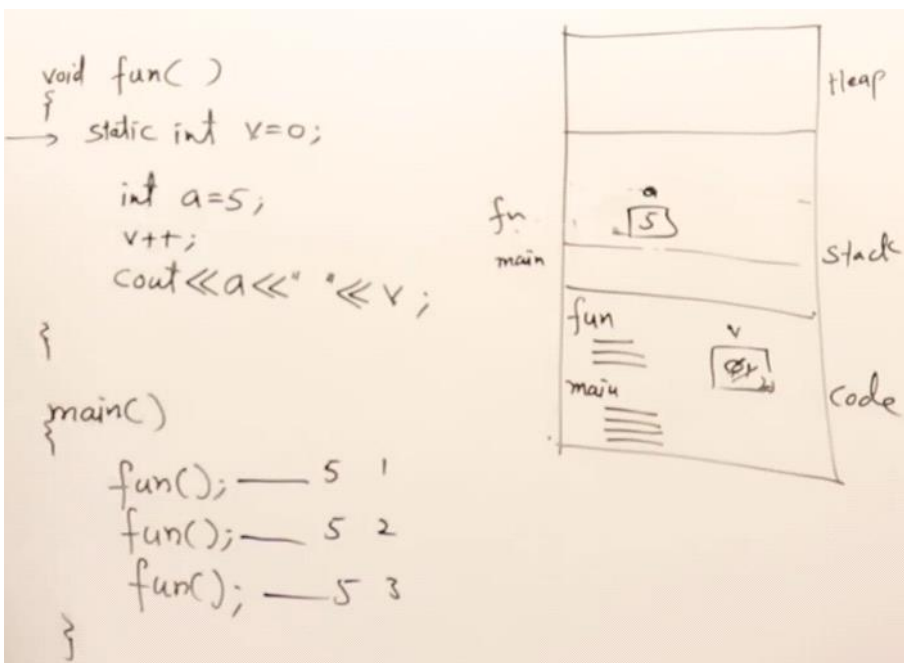 void fun( )
{
static int v=0;
int a=5;
v++;
cout<<a<<" "<<v;
}
main()
{
fun(); — 5 1
fun(); — 5 2
fun(); — 5 3
}
Heap
a
5
fn
main
stack
fun
v
main
code